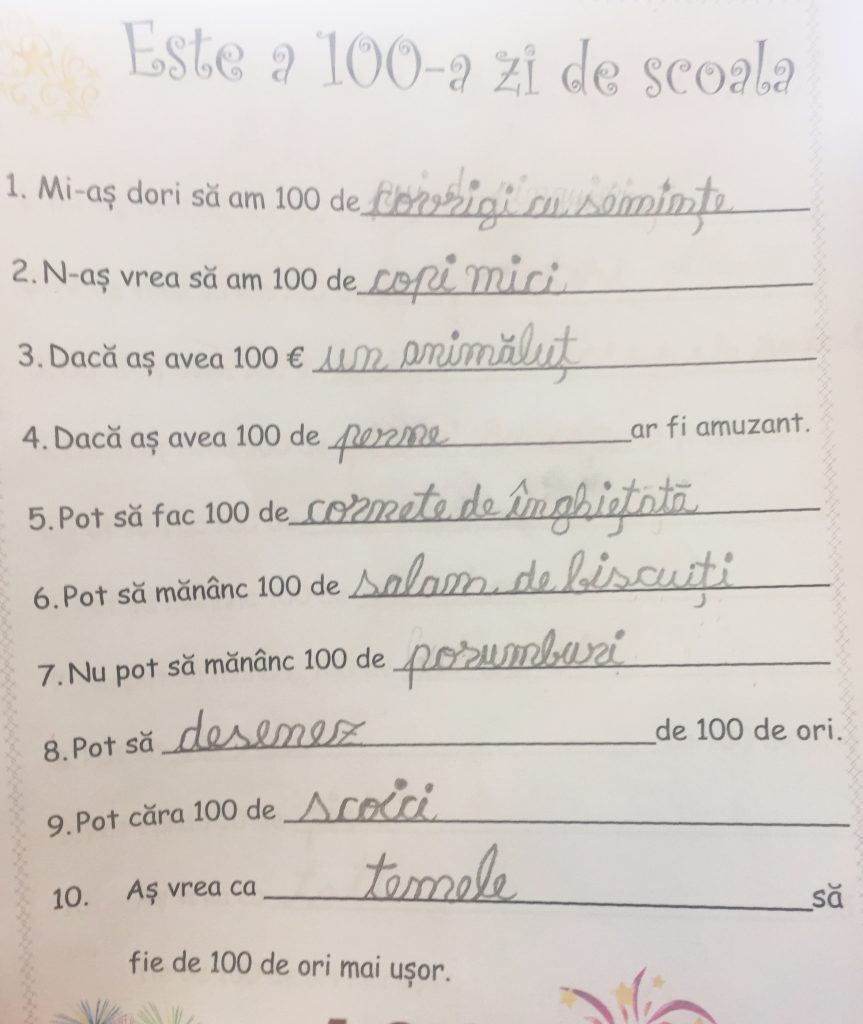 Este a 100-a zi de scoala
1. Mi-aș dori să am 100 de covrigi cu semințe
2. N-aș vrea să am 100 de copi mici
3. Dacă aș avea 100 € un animăluț
4. Dacă aș avea 100 de perne ar fi amuzant.
5. Pot să fac 100 de cornete de înghețată
6. Pot să mănânc 100 de salam de biscuiți
7. Nu pot să mănânc 100 de porumburi
8. Pot să desenez de 100 de ori.
9. Pot căra 100 de scoici
10. Aș vrea ca temele să
fie de 100 de ori mai ușor.